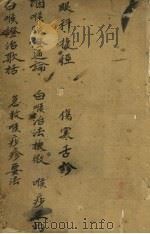 眼科捷徑 傷寒舌診
咽喉 通論 白喉治法抉微 喉痧
白喉證治歌括 急救喉疹要法